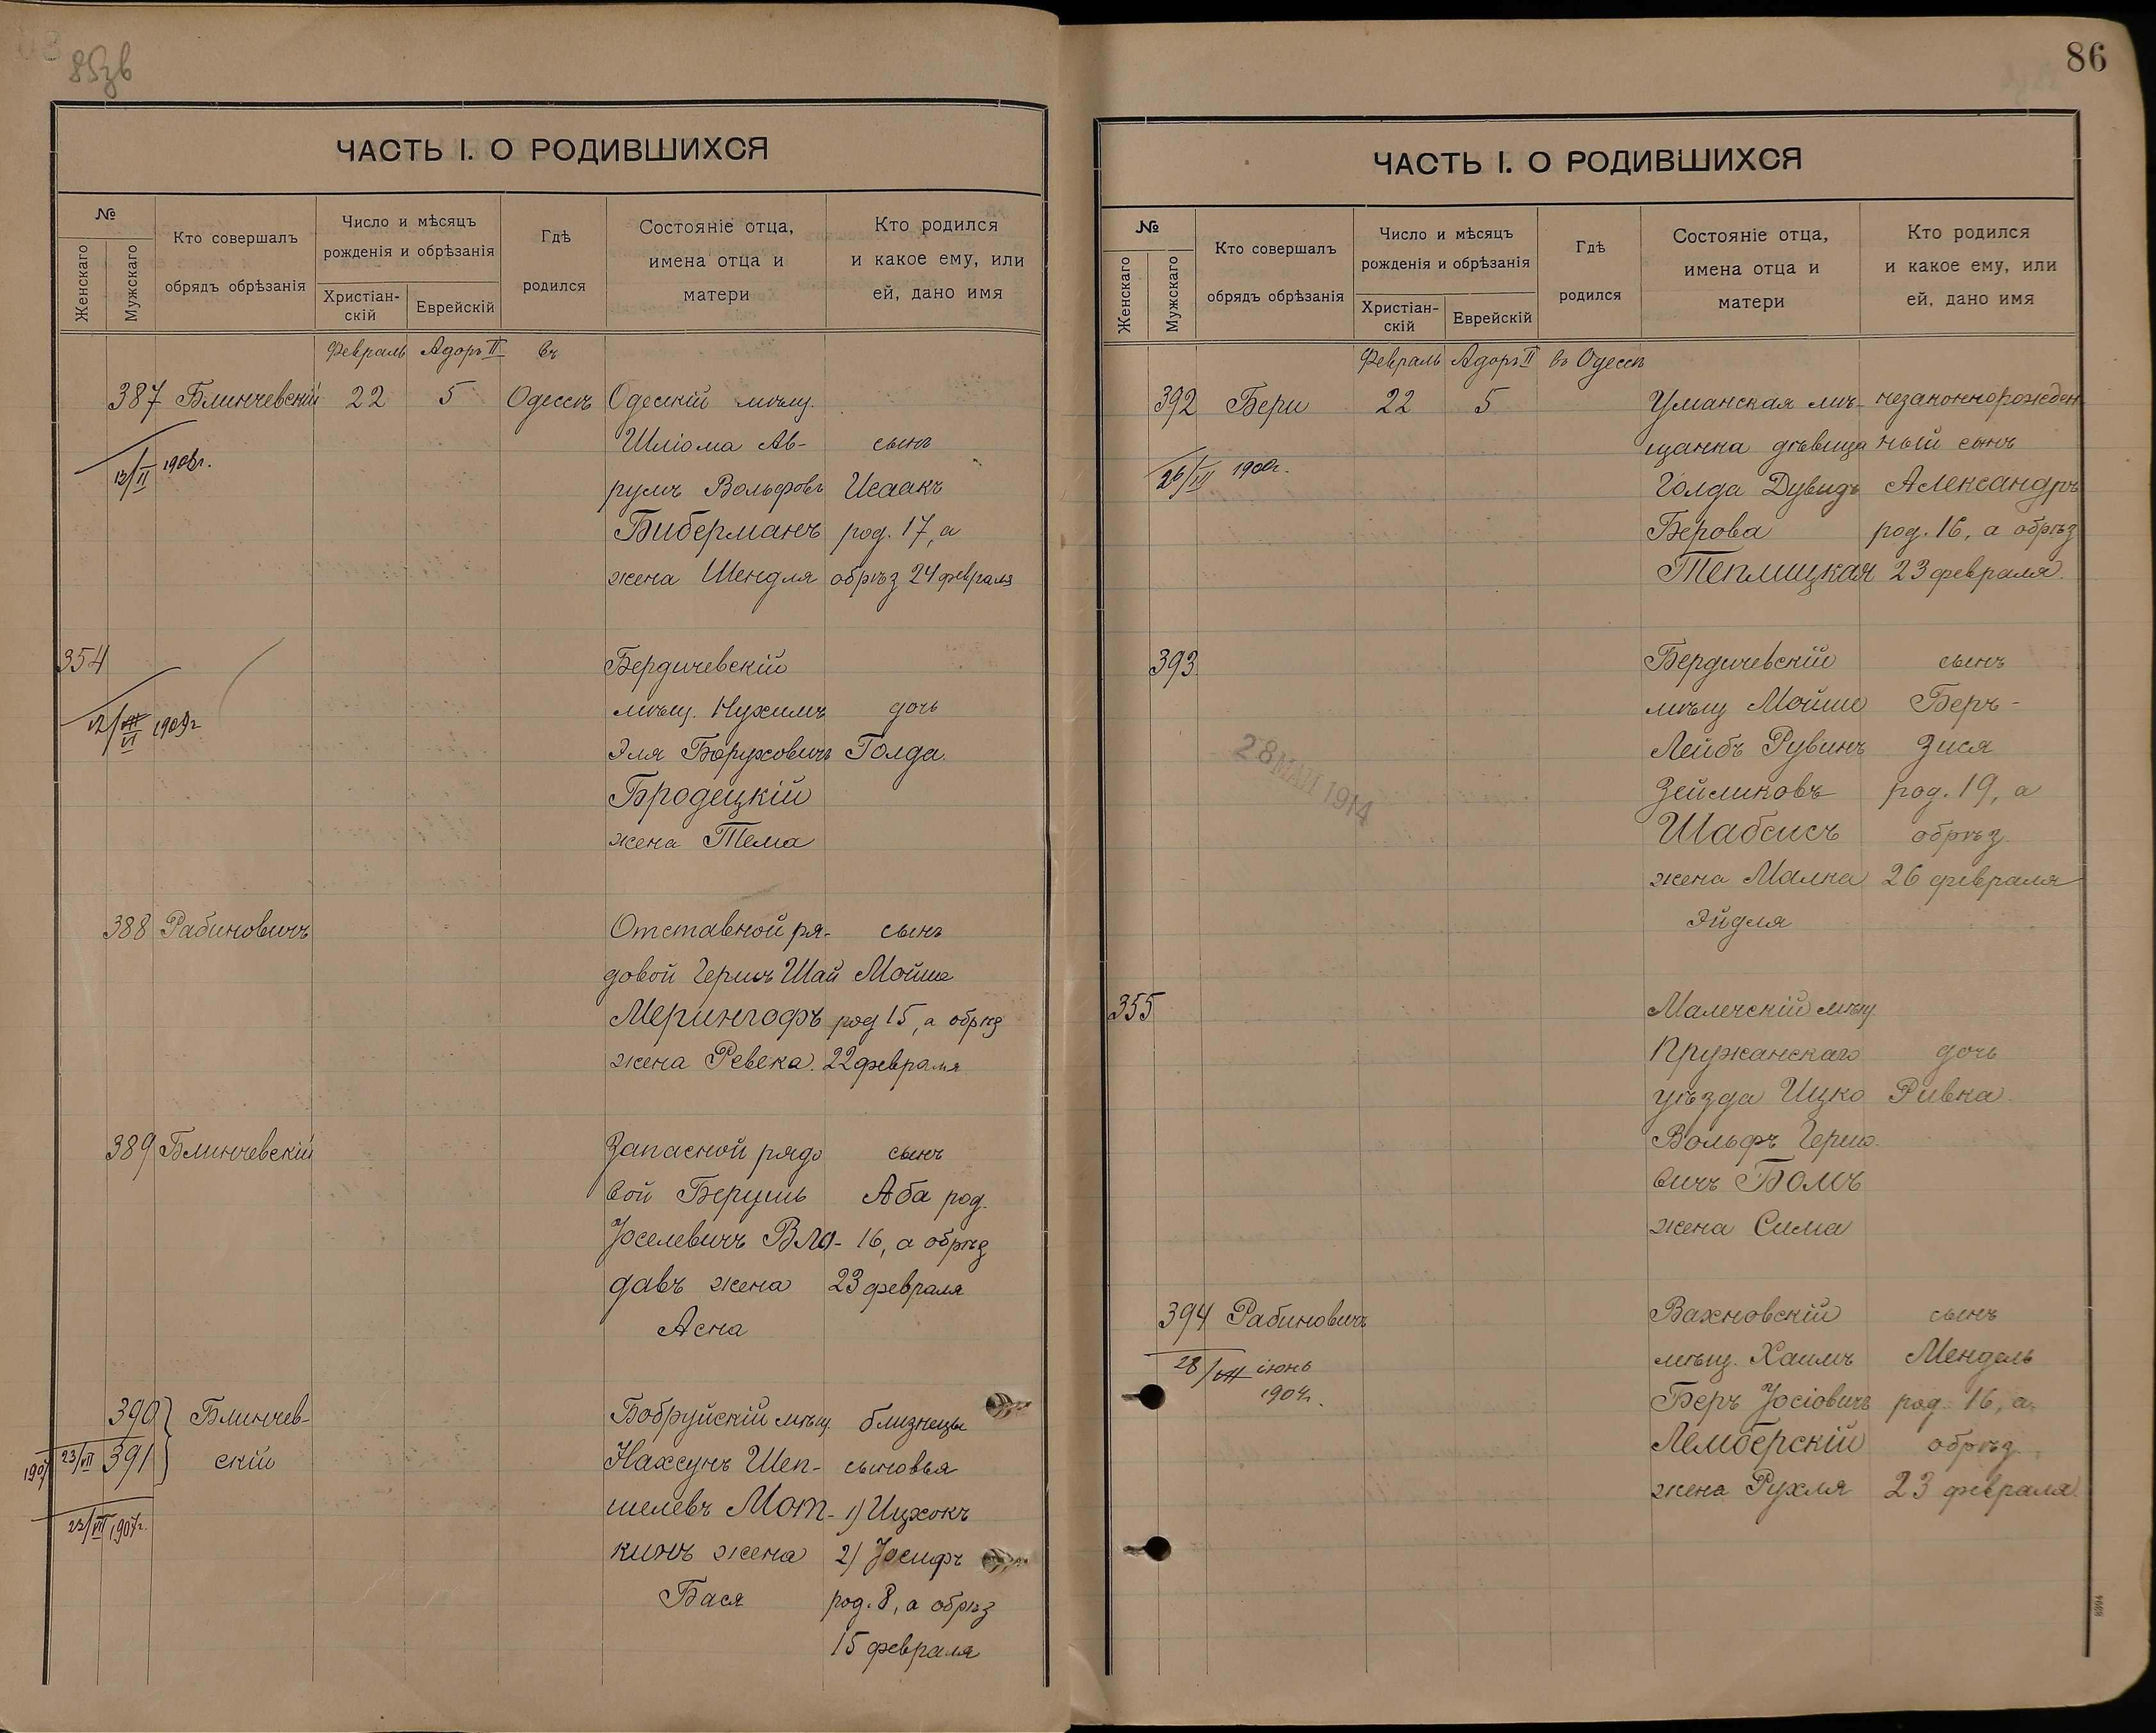 85зв
ЧАСТЬ I. О РОДИВШИХСЯ
№
Женскаго
Мужскаго
Кто совершалъ
обрядъ обрѣзанія
Число и мѣсяцъ
рожденія и обрѣзанія
Христіан-
скій
Еврейскій
Гдѣ
родился
Состояніе отца,
имена отца и
матери
Кто родился
и какое ему, или
ей, дано имя
Февраль Адоръ II въ
387 Блинчевскій 22 5 Одессѣ Одесскій мѣщ.
Шліома Ав- сынъ
румъ Вольфовъ Исаакъ
Биберманъ род. 17, а
жена Шендля обрѣз 24 февраля
354 Бердичевскій
мѣщ. Нухимъ дочь
Эля Боруховичъ Голда.
Бродецкій
жена Тема
388 Рабиновичъ Отставной ря- сынъ
довой Гершъ Шая Мойше
Мерингофъ род 15, а обрѣз
жена Ревека. 22 февраля
389 Блинчевскій Запасной рядо сынъ
вой Берушъ Аба род.
Іоселевичъ Вло- 16, а обрѣз
давъ жена 23 февраля
Асна
390 Блинчев- Бобруйскій мѣщ. близнецы
23/VII 391 скій Нахсунъ Шеп- сыновья
шелевъ Мот- 1) Ицхокъ
23/VII 1907г. кинъ жена 2) Іосифъ
Бася род. 8, а обрѣз
15 февраля
86
ЧАСТЬ I. О РОДИВШИХСЯ
№
Женскаго
Мужскаго
Кто совершалъ
обрядъ обрѣзанія
Число и мѣсяцъ
рожденія и обрѣзанія
Христіан-
скій
Еврейскій
Гдѣ
родился
Состояніе отца,
имена отца и
матери
Кто родился
и какое ему, или
ей, дано имя
Февраль Адоръ II въ Одессѣ
392 Бери 22 5 Уманская мѣ- незаконнорожден
щанка дѣвица ный сынъ
Голда Дувидъ Александръ
Берова род. 16, а обрѣз
Теплицкая 23 февраля.
393 Бердичевскій сынъ
мѣщ Мойше Беръ-
Лейбъ Рувинъ Зися
28 МАЙ 1914
Зейликовъ род. 19, а
Шабсисъ обрѣз.
жена Малка 26 февраля
Эйдля
355 Малечскій мѣщ
Пружанскаго дочь
уѣзда Ицко Ривка.
Вольфъ Герш-
вичъ Бомъ
жена Сима
394 Рабиновичъ Вахновскій сынъ
28/VII іюнь
мѣщ. Хаимъ Мендель
Беръ Іосіовичъ род. 16, а
Лемберскій обрѣз.
жена Рухля 23 февраля.